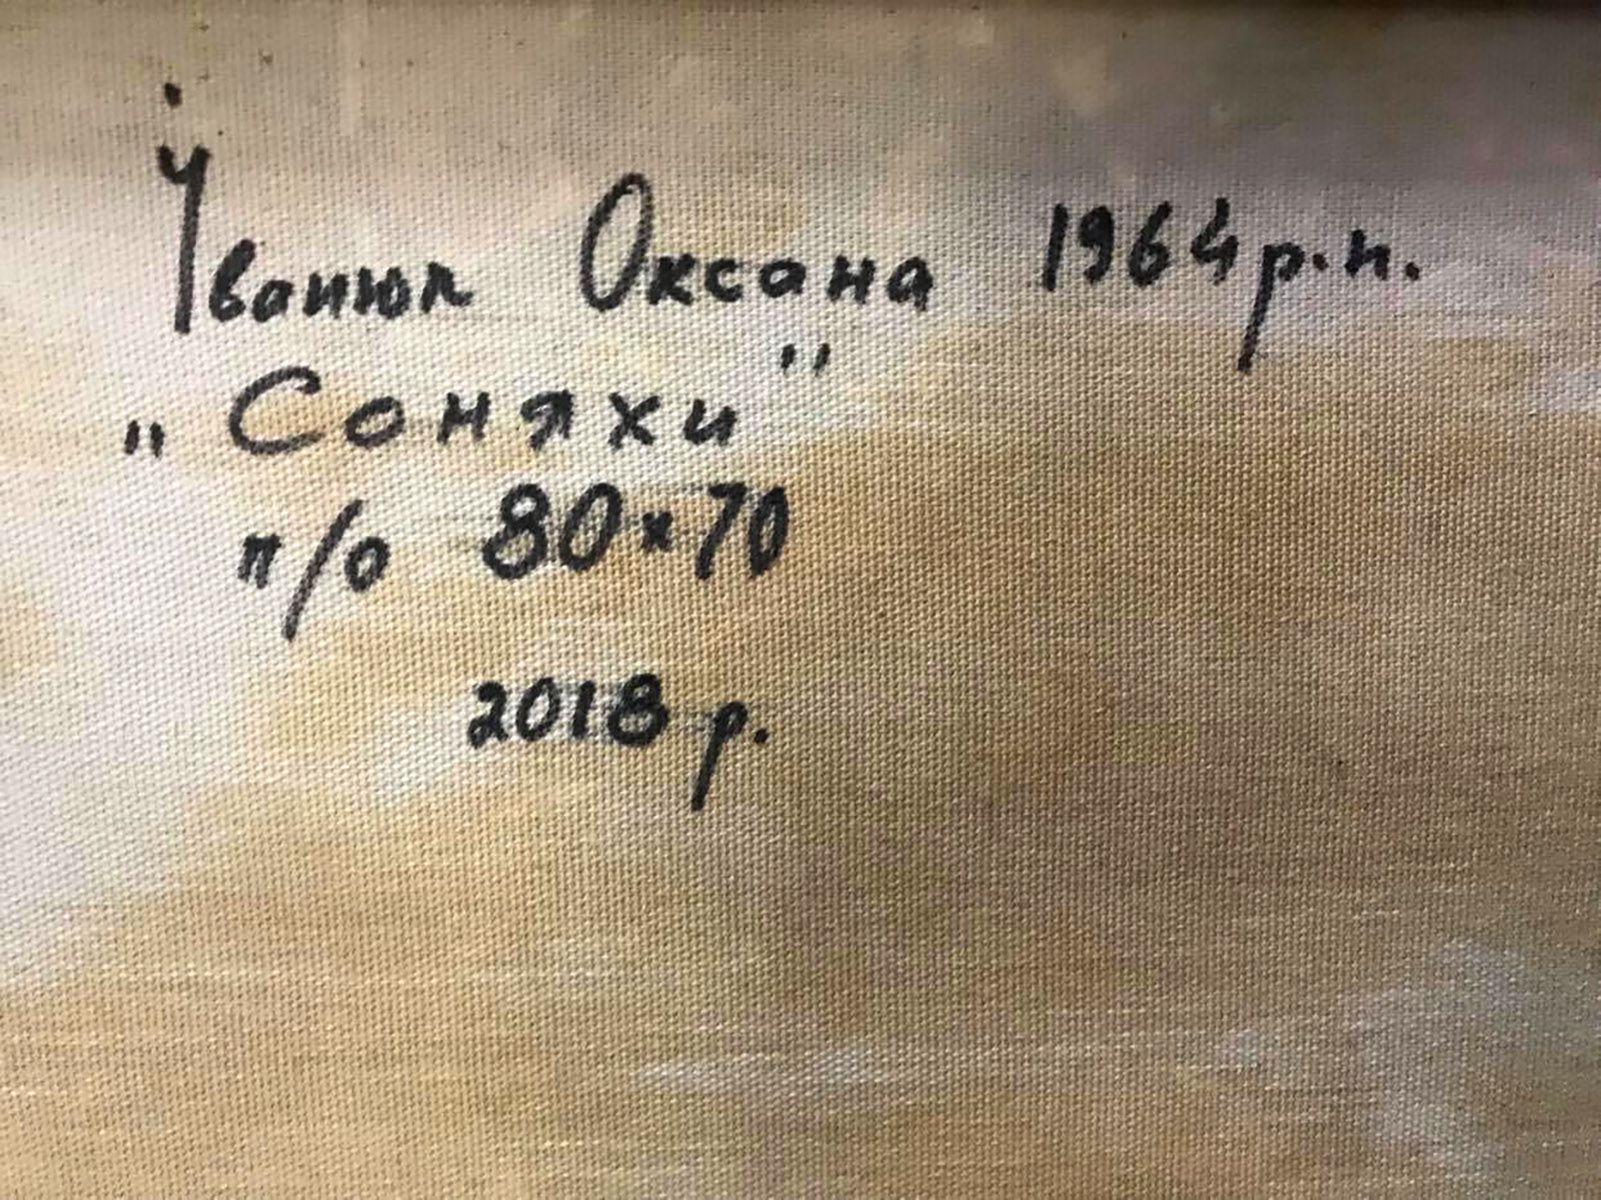 Іванюк Оксана 1964 р.н.
„Соняхи"
п/о 80×70
2018 р.